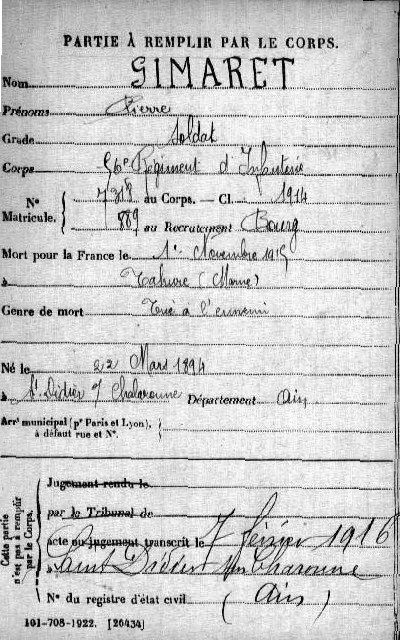 PARTIE À REMPLIR PAR LE CORPS.
Nom GIMARET
Prénoms Pierre
Grade Soldat
Corps 56e Régiment d'Infanterie
N° Matricule. 7318 au Corps. — Cl. 1914
889 au Recrutement Bourg
Mort pour la France le 1er Novembre 1915
à Tahure (Marne)
Genre de mort Tué à l'ennemi
Né le 22 Mars 1894
à St Didier s/ Chalaronne Département Ain
Arrt municipal (pr Paris et Lyon),
à défaut rue et N°.
Cette partie
n'est pas à remplir
par le Corps.
Jugement rendu le
par le Tribunal de
acte ou jugement transcrit le 7 février 1916
à Saint Didier
N° du registre d'état civil (Ain)
101-708-1922. [26434]